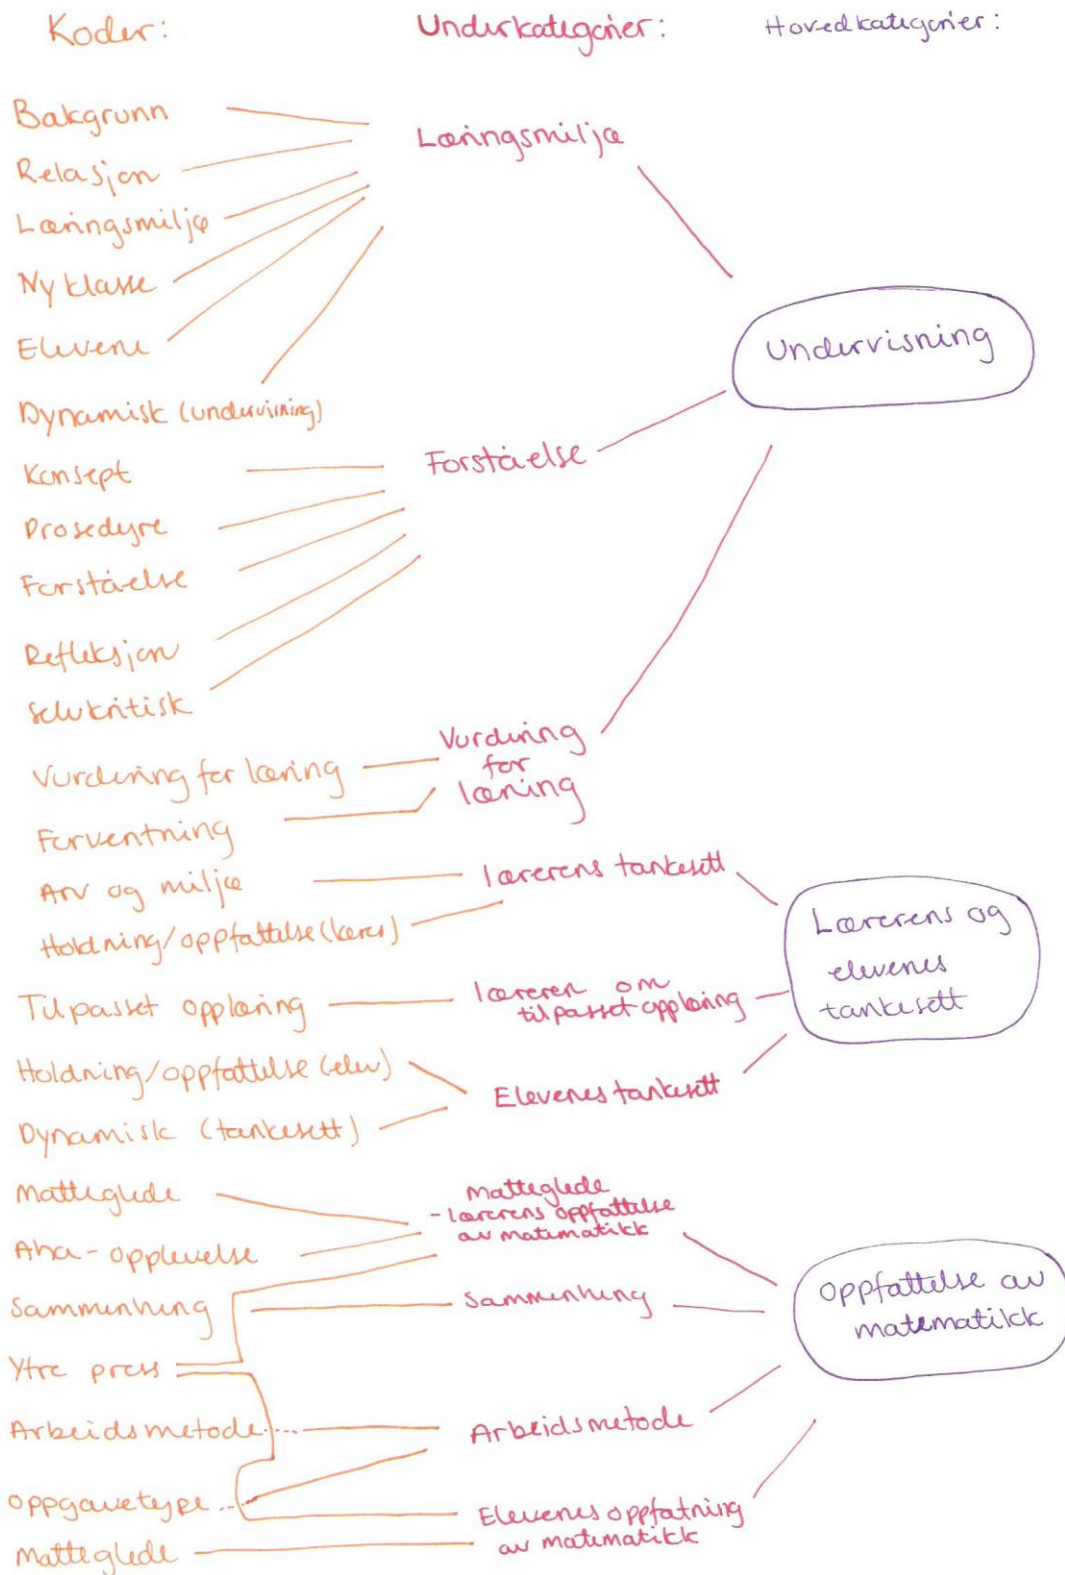 Koder:
Underkategorier:
Hovedkategorier:
Bakgrunn
Relasjon
Læringsmiljø
Ny klasse
Elevene
Dynamisk (undervisning)
Konsept
Prosedyre
Forståelse
Refleksjon
Selvkritisk
Vurdering for læring
Forventning
Arv og miljø
Holdning/oppfattelse (lærer)
Tilpasset opplæring
Holdning/oppfattelse (elev)
Dynamisk (tankesett)
Matteglede
Aha-opplevelse
Sammenheng
Ytre press
Arbeidsmetode
Oppgavetype
Matteglede
Læringsmiljø
Forståelse
Vurdering
for
læring
lærerens tankesett
læreren om
tilpasset opplæring
Elevenes tankesett
Matteglede
- lærerens oppfattelse
av matematikk
Sammenheng
Arbeidsmetode
Elevenes oppfatning
av matematikk
Undervisning
Lærerens og
elevenes
tankesett
Oppfattelse av
matematikk